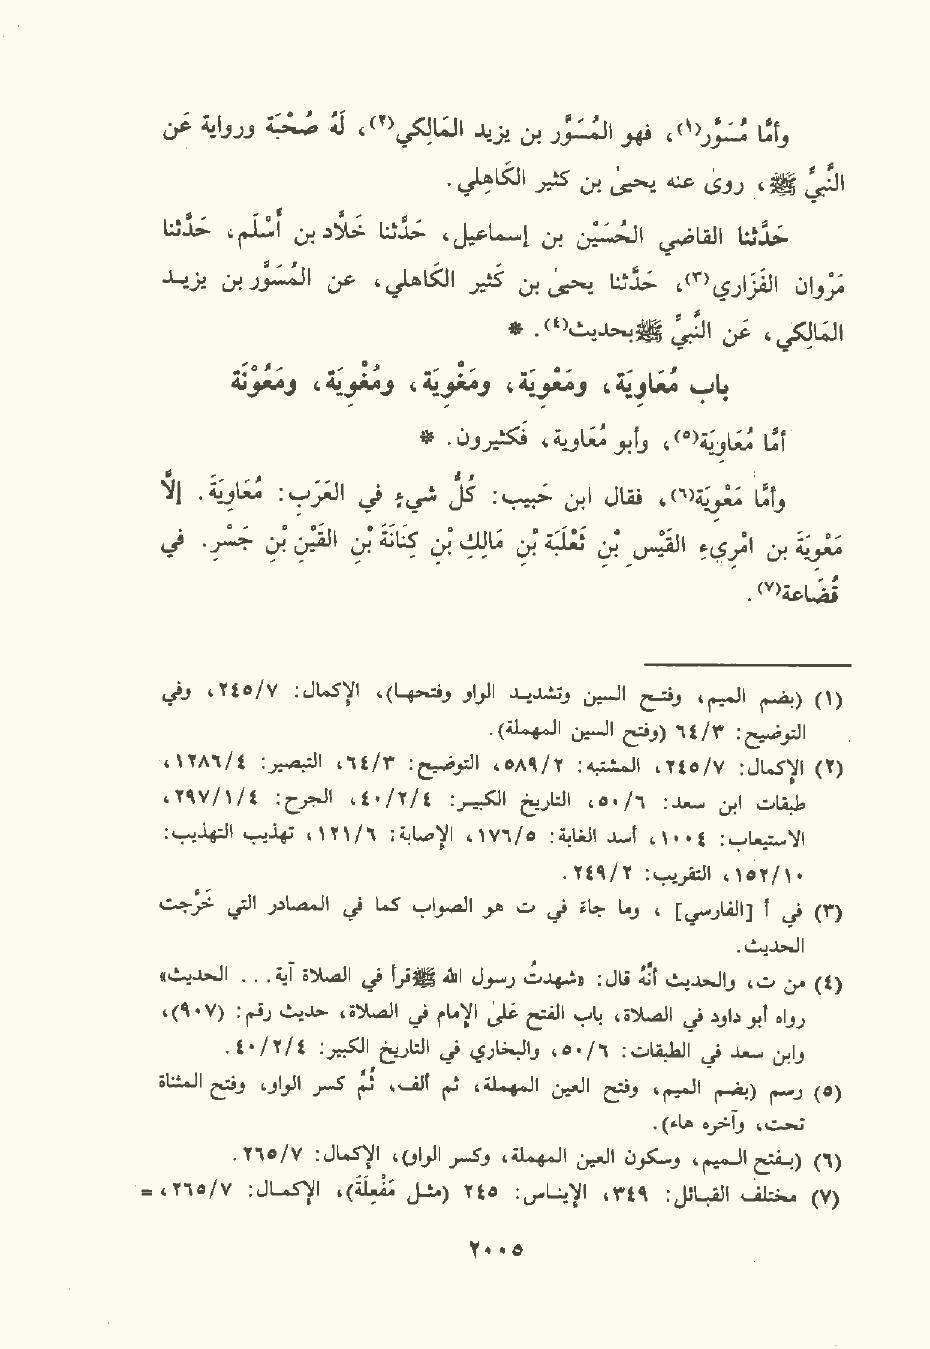 وأمَّا مُسَوَّر(١)، فهو المُسَوَّر بن يزيد المَالِكي(٢)، لَهُ صُحْبَة ورواية عَن
النَّبيِّ ﷺ، روىٰ عنه يحيىٰ بن كثير الكَاهِلي.
حَدَّثنا القاضي الحُسَيْن بن إسماعيل، حَدَّثنا خَلَّاد بن أَسْلَم، حَدَّثنا
مَرْوان الفَزَاري(٣)، حَدَّثنا يحيىٰ بن كثير الكَاهلي، عن المُسَوَّر بن يزيد
المَالِكي، عَن النَّبيِّ ﷺ بحديث(٤). *
باب مُعَاوِيَة، ومَعْوِيَة، ومَغْوِيَة، ومُغْوِيَة، ومَعُوْنَة
أمَّا مُعَاوِيَة(٥)، وأبو مُعَاوية، فَكثيرون. *
وأمَّا مَعْوِيَة(٦)، فقال ابن حَبيب: كُلُّ شيء في العَرَب: مُعَاوِيَة. إلَّا
مَعْوِيَة بن امْرِيءِ القَيْسِ بْنِ ثَعْلَبَة بْنِ مَالِكِ بْنِ كِنَانَة بْنِ القَيْنِ بْنِ جَسْرِ. في
قُضَاعة(٧).
(١) (بضم الميم، وفتح السين وتشديد الواو وفتحها)، الإكمال: ٢٤٥/٧، وفي
التوضيح: ٦٤/٣ (وفتح السين المهملة).
(٢) الإكمال: ٢٤٥/٧، المشتبه: ٥٨٩/٢، التوضيح: ٦٤/٣، التبصير: ١٢٨٦/٤،
طبقات ابن سعد: ٥٠/٦، التاريخ الكبير: ٤٠/٢/٤، الجرح: ٢٩٧/١/٤،
الاستيعاب: ١٠٠٤، أسد الغابة: ١٧٦/٥، الإصابة: ١٢١/٦، تهذيب التهذيب:
١٥٢/١٠، التقريب: ٢٤٩/٢.
(٣) في أ [الفارسي]، وما جاء في ت هو الصواب كما في المصادر التي خَرَّجت
الحديث.
(٤) من ت، والحديث أنَّهُ قال: «شهدتُ رسول الله ﷺ قرأ في الصلاة آية... الحديث»
رواه أبو داود في الصلاة، باب الفتح عَلىٰ الإمام في الصلاة، حديث رقم: (٩٠٧)،
وابن سعد في الطبقات: ٥٠/٦، والبخاري في التاريخ الكبير: ٤٠/٢/٤.
(٥) رسم (بضم الميم، وفتح العين المهملة، ثم ألف، ثُمَّ كسر الواو، وفتح المثناة
تحت، وآخره هاء).
(٦) (بفتح الميم، وسكون العين المهملة، وكسر الواو)، الإكمال: ٢٦٥/٧.
(٧) مختلف القبائل: ٣٤٩، الإيناس: ٢٤٥ (مثل مَفْعِلَة)، الإكمال: ٢٦٥/٧، =
٢٠٠٥